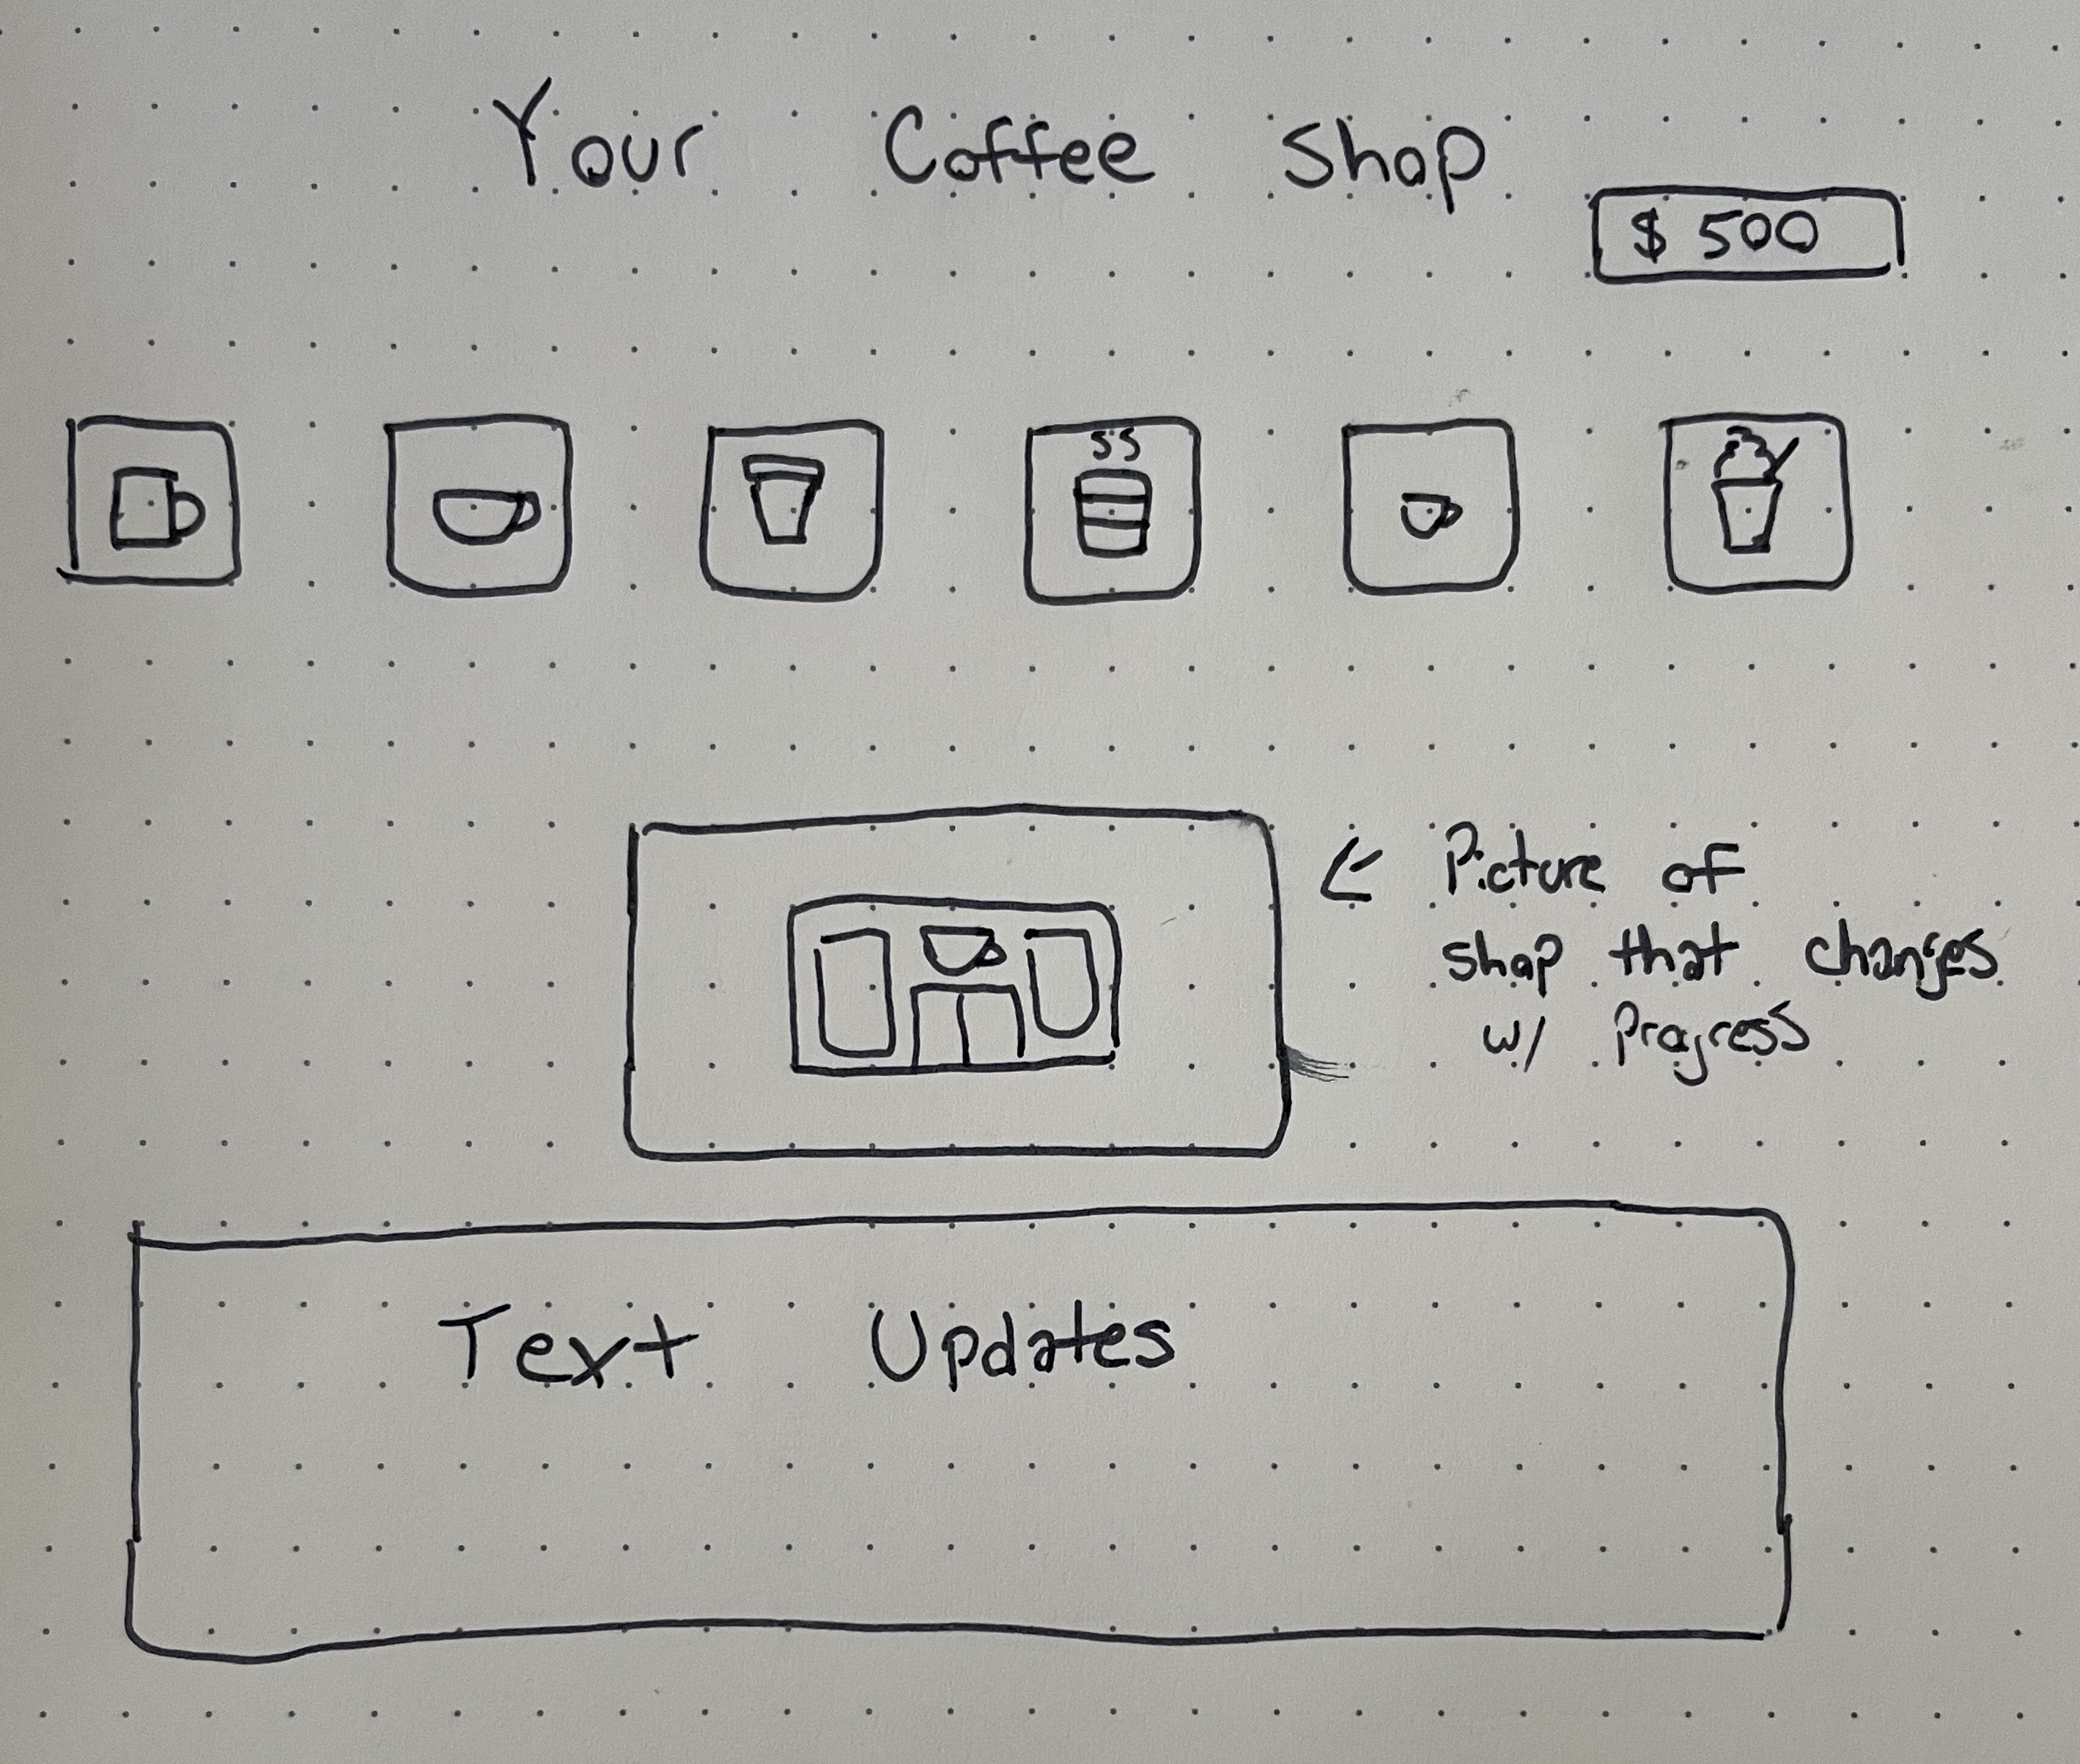 Your Coffee Shop
$ 500
← Picture of
shop that changes
w/ Progress
Text Updates